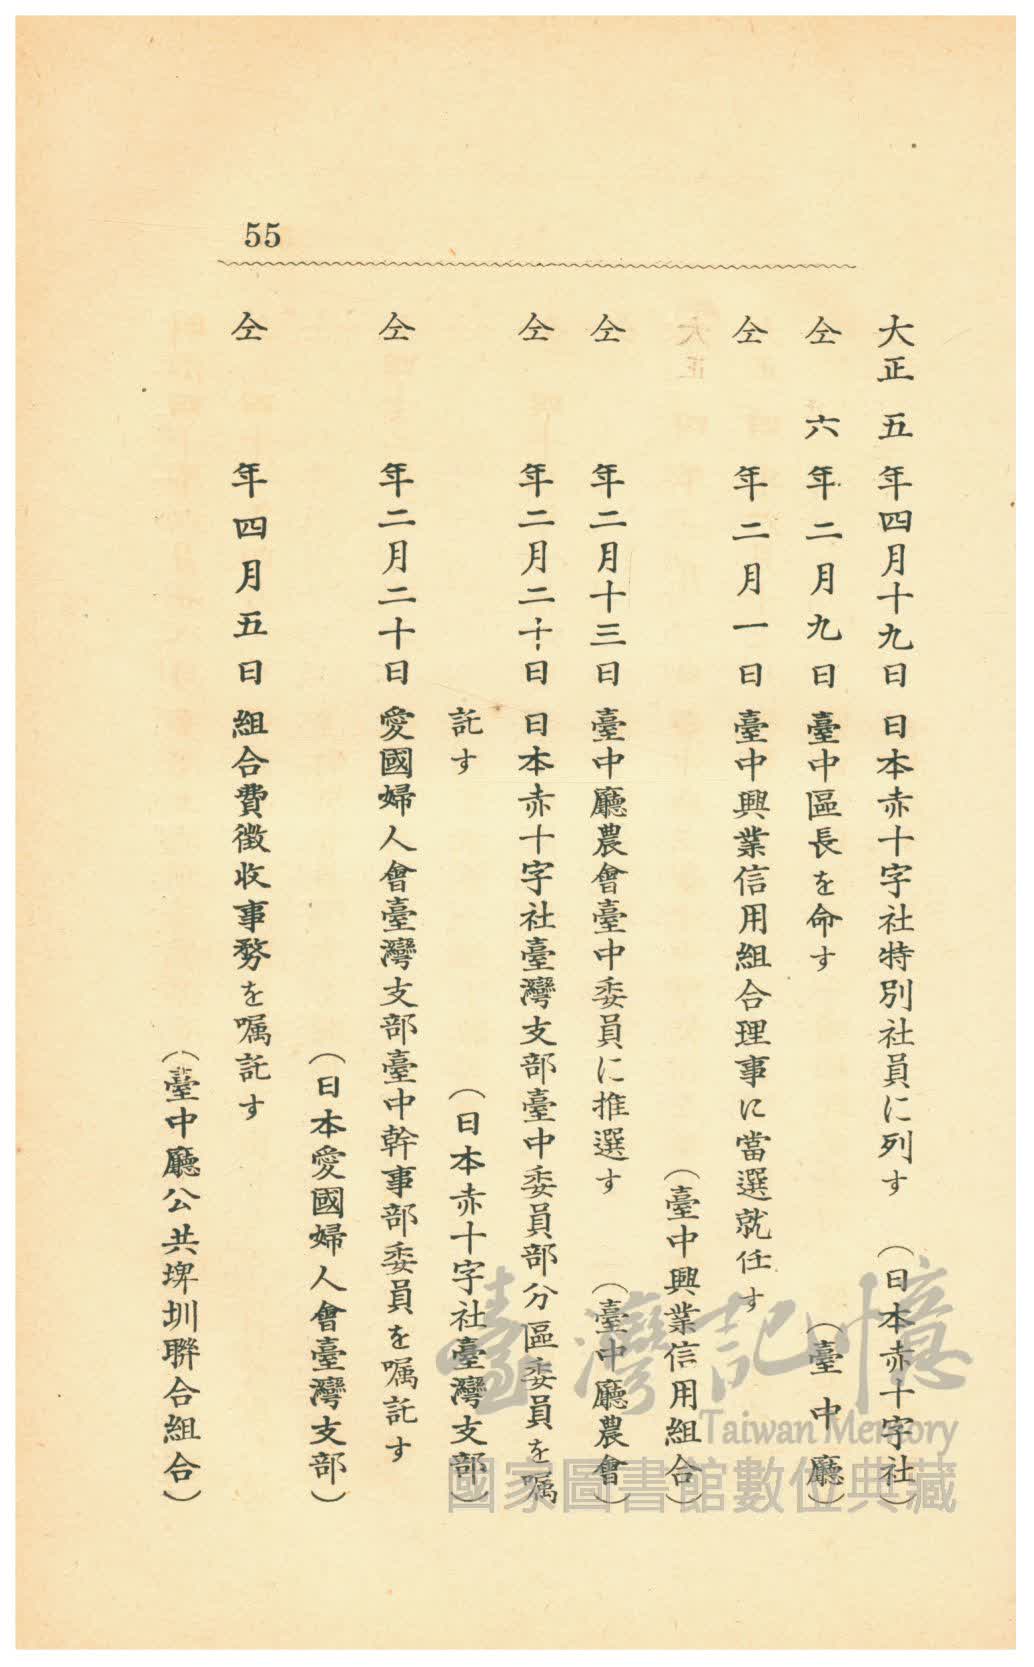 55
大正五年四月十九日 日本赤十字社特別社員に列す (日本赤十字社)
仝 六年二月九日 臺中區長を命す (臺中廳)
仝 年二月一日 臺中興業信用組合理事に當選就任す
(臺中興業信用組合)
仝 年二月十三日 臺中廳農會臺中委員に推選す (臺中廳農會)
仝 年二月二十日 日本赤十字社臺灣支部臺中委員部分區委員を嘱
託す (日本赤十字社臺灣支部)
仝 年二月二十日 愛國婦人會臺灣支部臺中幹事部委員を嘱託す
(日本愛國婦人會臺灣支部)
仝 年四月五日 組合費徴收事務を嘱託す
(臺中廳公共埤圳聯合組合)
臺灣記憶
Taiwan Memory
國家圖書館數位典藏